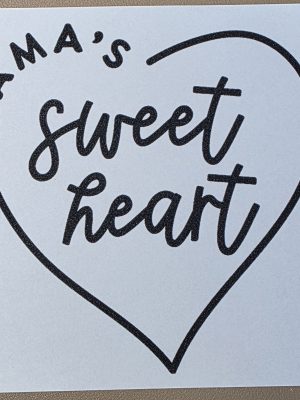 AMA'S
sweet
heart